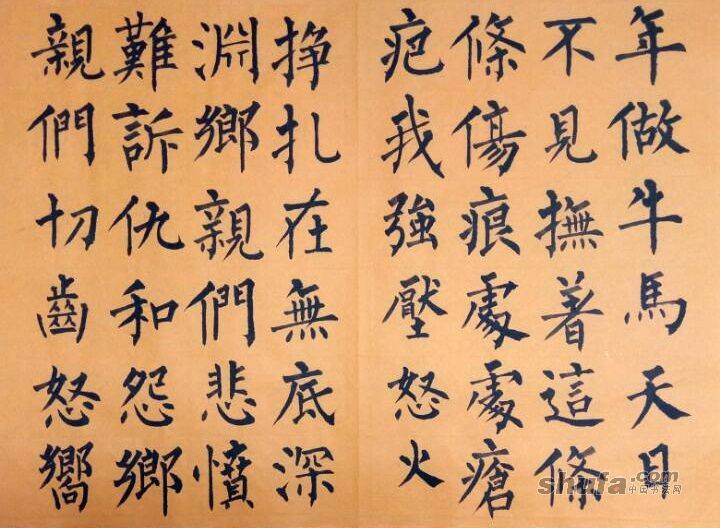 年做牛馬天日
不見撫著這條
條傷痕處處瘡
疤我強壓怒火
挣扎在無底深
淵鄉親們悲憤
難訴仇和怨鄉
親們切齒怒嚮
shufa.com
中国书法网